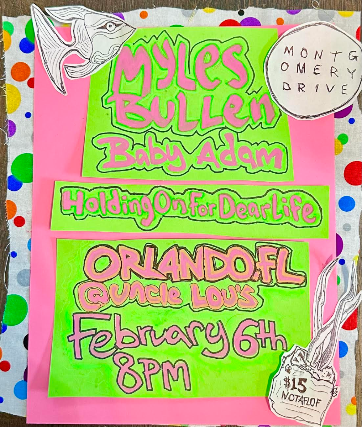 Myles
Bullen
Baby Adam
MONTG
OMERY
DRIVE
Holding On For Dear Life
ORLANDO, FL
@Uncle Lou's
February 6th
8PM
$15
NOTAFLOF